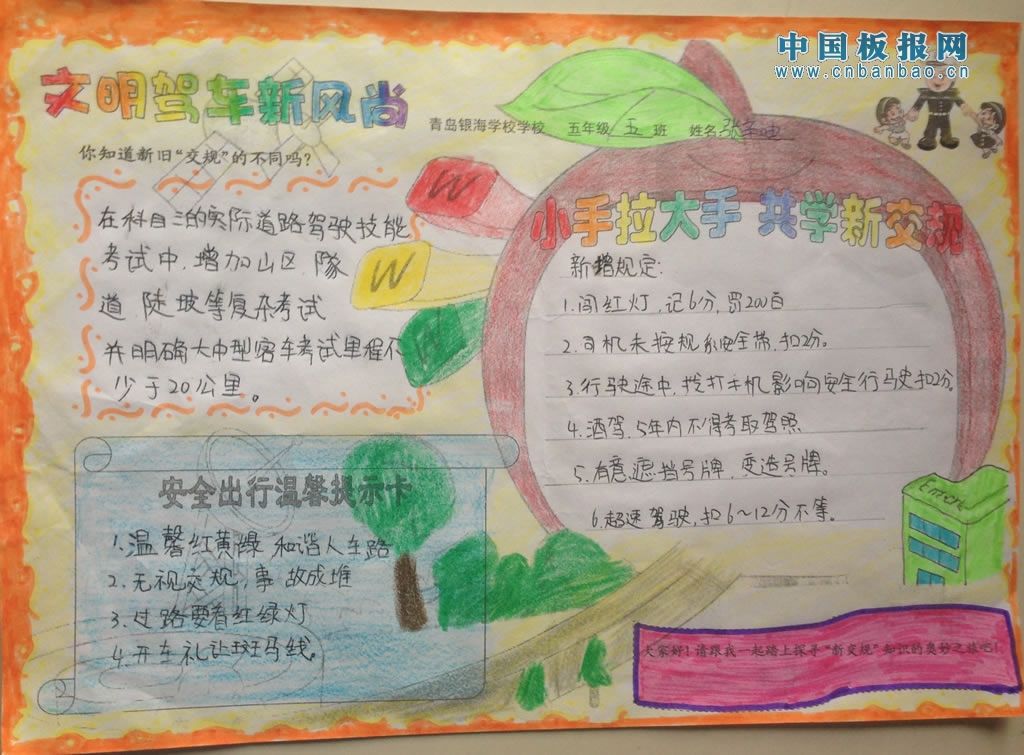 中国板报网
www.cnbanbao.cn
文明驾车新风尚
青岛银海学校学校 五年级 五 班 姓名 张
你知道新旧“交规”的不同吗？
在科目三的实际道路驾驶技能
考试中，增加山区、隊
道、陡坡等复杂考试
并明确大中型客车考试里程不
少于20公里。
W
W
W
小手拉大手 共学新交规
新增规定：
1.闯红灯，记6分，罚200百
2.司机未按规系安全带，扣2分。
3.行驶途中，拨打手机影响安全行马史扣2分。
4.酒驾，5年内不得考取驾照
5.有意遮挡号牌，变造号牌。
6.超速驾驶，扣6～12分不等。
安全出行温馨提示卡
1.温馨红黄绿 和谐人车路
2.无视交规，事故成堆
3.过路要看红绿灯
4.开车礼让斑马线。
大家好！请跟我一起踏上探寻“新交规”知识的奥妙之旅吧！